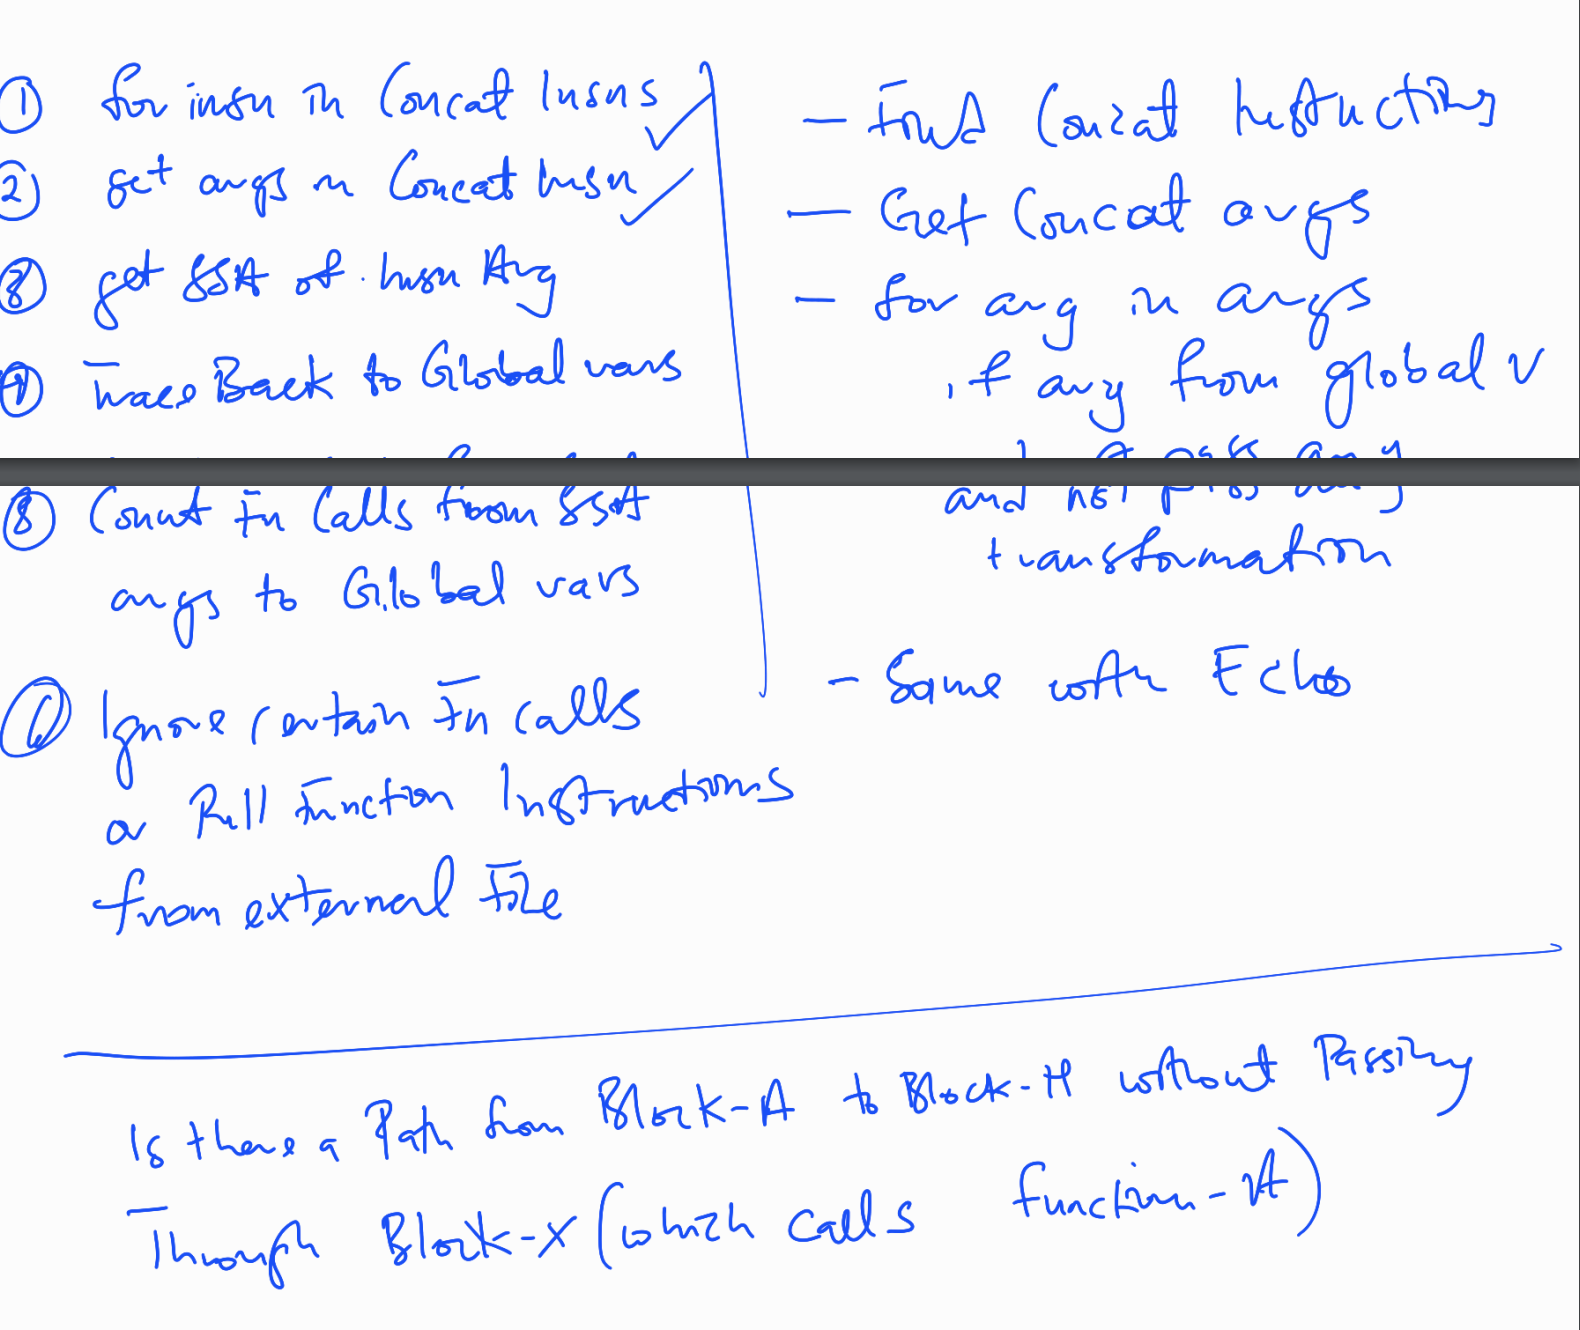 ① for insn in Concat Insns
② get args in Concat Insn
③ get SSA of Insn Arg
④ Trace Back to Global vars
⑧ Count Fn Calls from SSA
args to Global vars
Ignore certain Fn calls
or Pull Function Instructions
from external File
— Find Concat Instructions
— Get Concat args
— for arg in args
if arg from global v
and not pass any
transformation
- Same with Echo
Is there a Path from Block-A to Block-H without Passing
Through Block-X (which calls function-A)